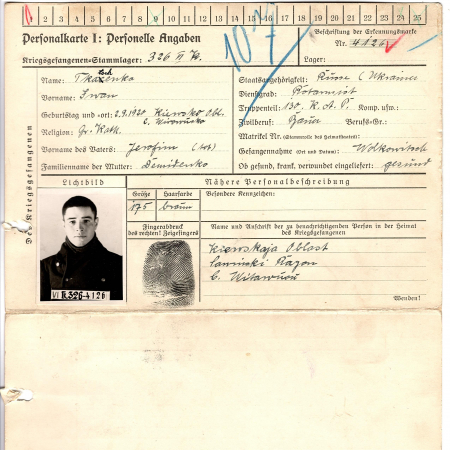 1 2 3 4 5 6 7 8 9 10 11 12 13 14 15 16 17 18 19 20 21 22 23 24 25
Personalkarte I: Personelle Angaben
Beschriftung der Erkennungsmarke
Kriegsgefangenen-Stammlager: 326 VI K.
Nr. 4126
Lager:
107
Des Kriegsgefangenen
Name:
Vorname: Iwan
Geburtstag und -ort: 2.9.1920 Kiewsko Obl.
Religion: Gr. Kath.
Vorname des Vaters: Jerofim
Familienname der Mutter: Demidenko
Staatsangehörigkeit: Russe (Ukrainer
Dienstgrad: Rotarmist
Truppenteil: 130. Komp. usw.:
Zivilberuf: Bauer Berufs-Gr.:
Matrikel Nr. (Stammrolle des Heimatstaates):
Gefangennahme (Ort und Datum): Wolkowitsch
Ob gesund, krank, verwundet eingeliefert: gesund
Lichtbild
Nähere Personalbeschreibung
Größe Haarfarbe Besondere Kennzeichen:
175 braun
Fingerabdruck
des rechten! Zeigefingers
Name und Anschrift der zu benachrichtigenden Person in der Heimat
des Kriegsgefangenen
Kiewskaja Oblast
Rayon
VI K 326-4126
Wenden!